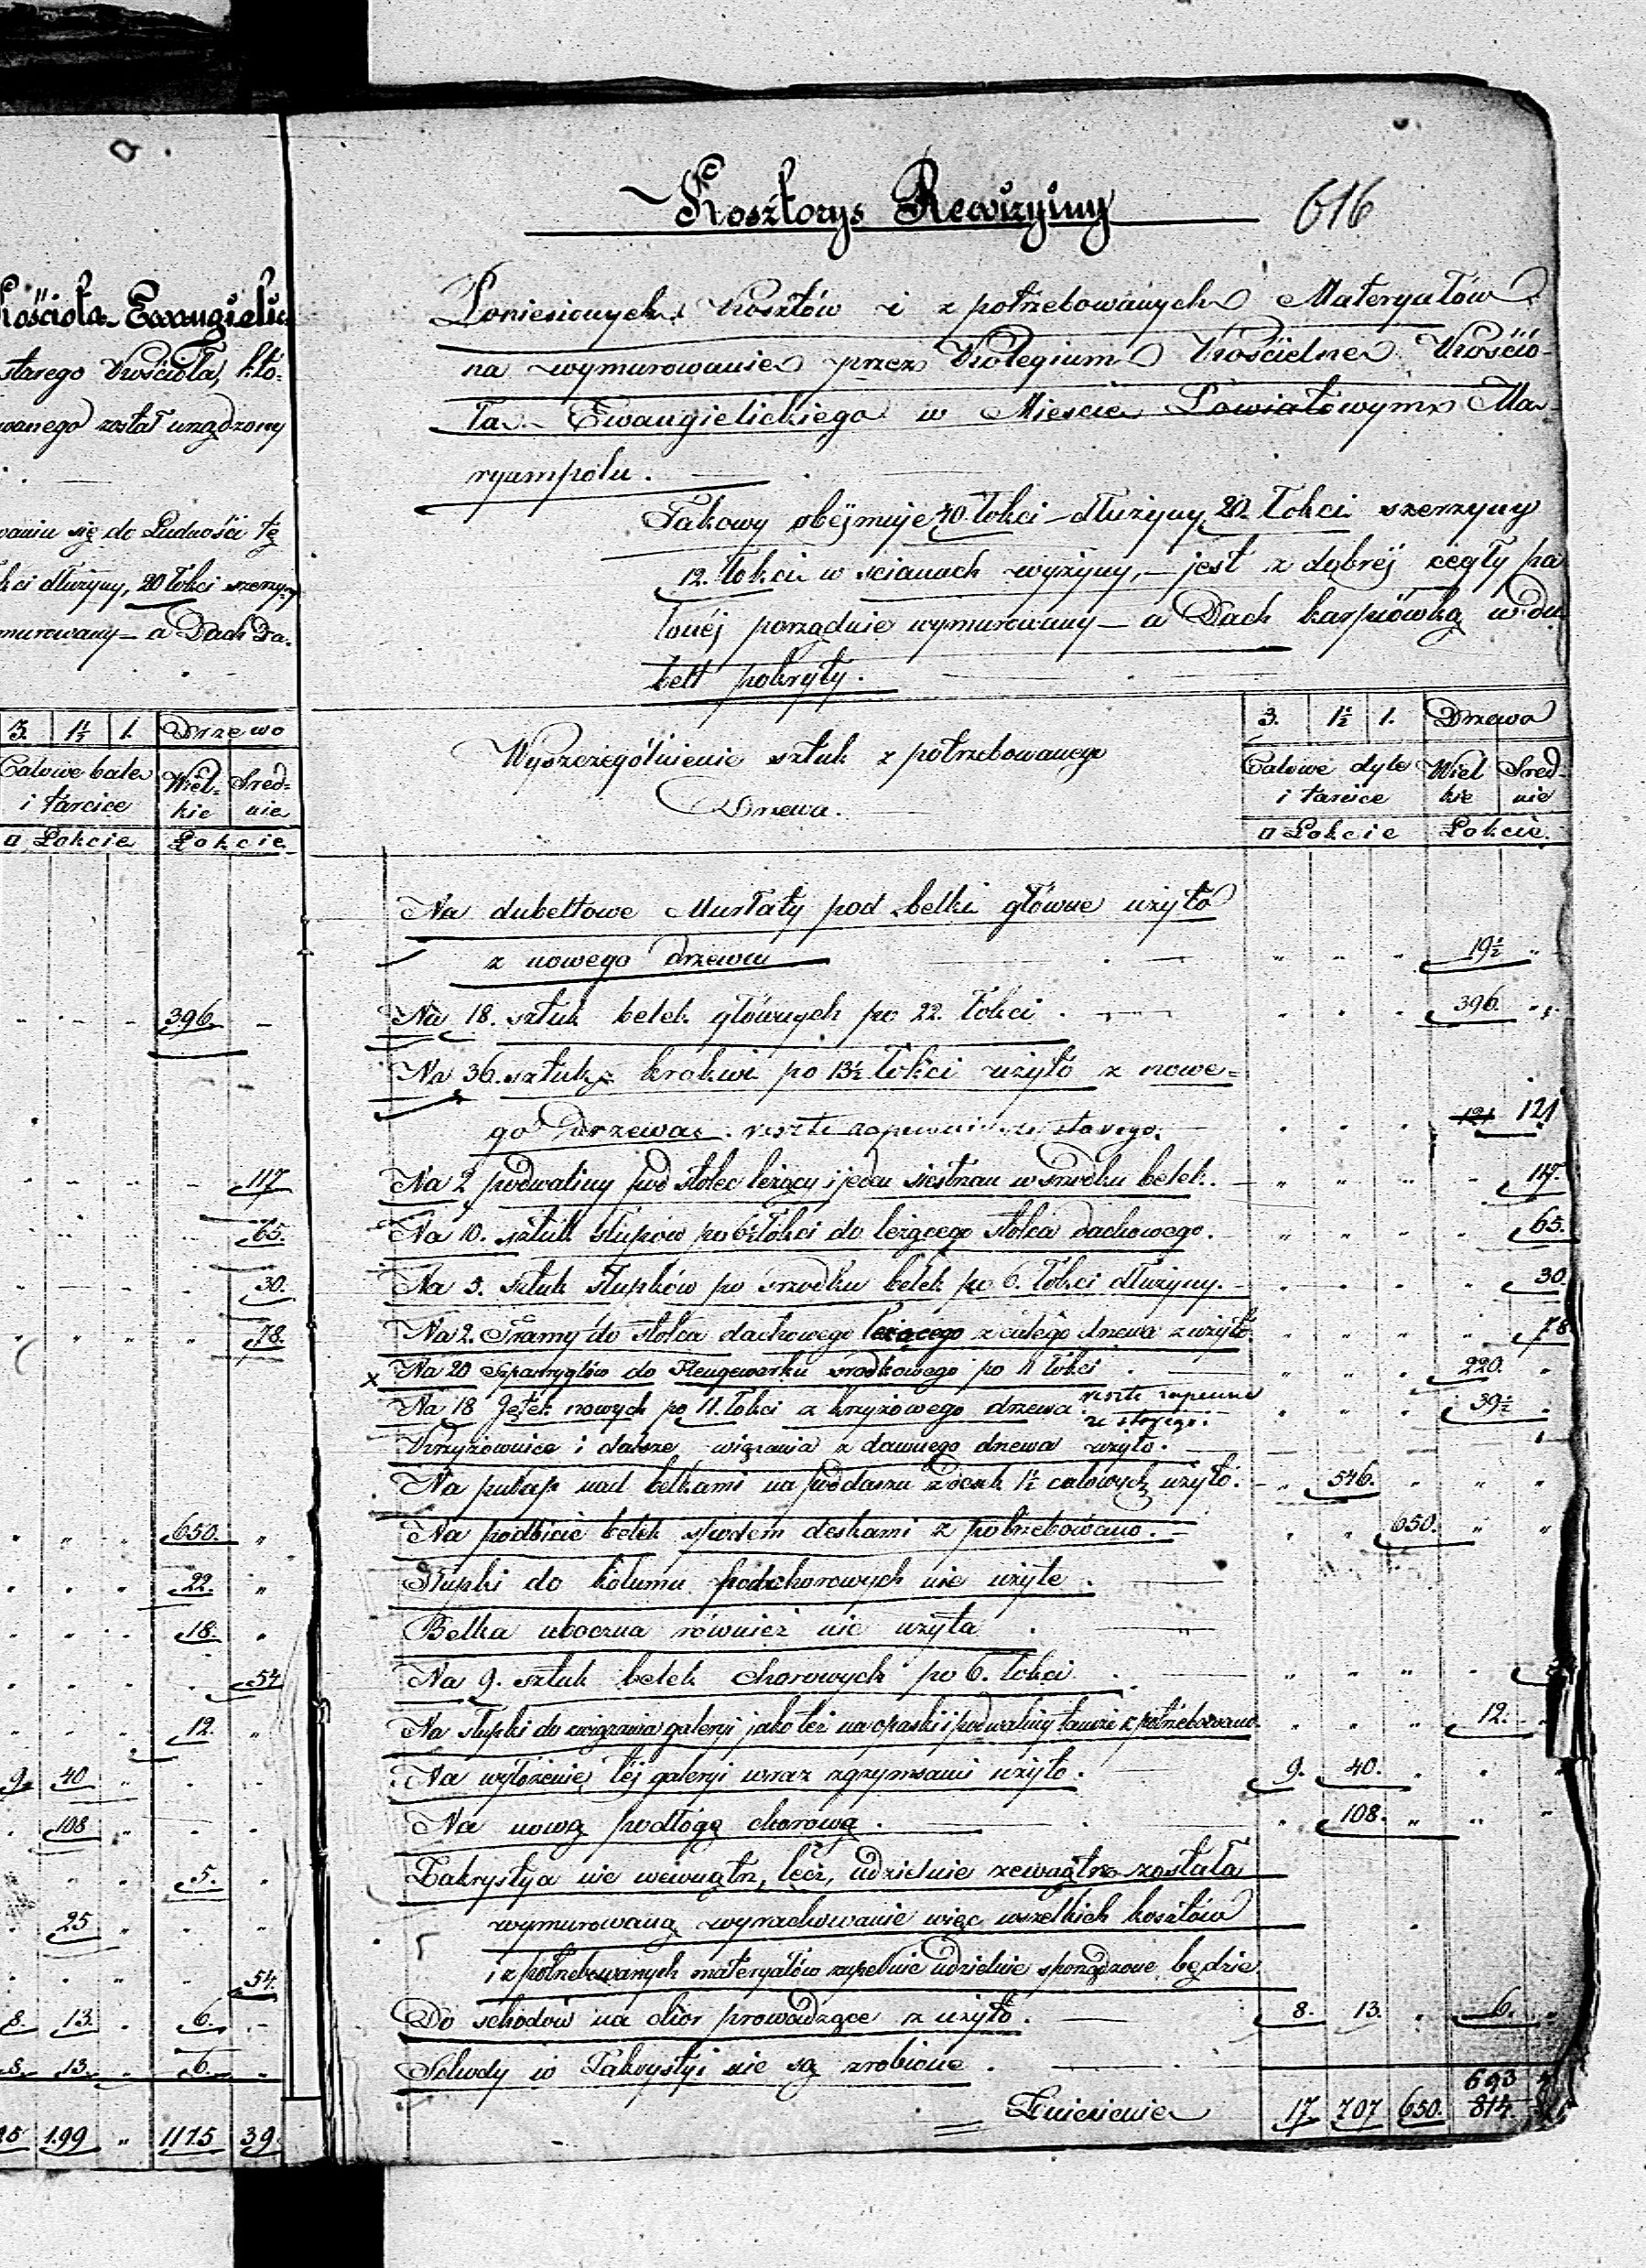 Kościoła Ewangielic
starego Kościoła, któ-
wanego został urządzony
waniu się do Ludności tę
kci dłużyny, 20 łokci szerzyny
murowany – a Dach Da.
3. 1½ 1. Drzewo
Calowe bale Wiel- Sred-
i tarcice kie nie
□ Łokcie Łokcie
396.
117
65.
30.
78.
650.
22.
18.
54
12.
9. 40
108
5.
25
54.
8. 13. 6.
8. 13. 6.
199 1175 39.
Kosztorys Rewizyiny 616
Poniesionych kosztów i z potrzebowanych Materyałów
na wymurowanie przez Kolegium Kościelne Kościo-
ła Ewangielickiego w Miescie Powiatowym Ma-
ryampolu.
Takowy obejmuje 40 łokci dłużyny 20. łokci szerzyny
12. łokci w scianach wyżyny, – jest z dobrej cegły pa
lonéj porządnie wymurowany – a Dach karpiówką w du
belt pokryty.
Wyszczegolnienie sztuk z potrzebowanego
Drzewa.
3. 1½ 1. Drzewa
Calowe dyle Wiel Sred-
i tarcice kie nie
□ Łokcie Łokcie.
Na dubeltowe Murłaty pod belki główne użyto
z nowego drzewa 19½
Na 18. sztuk belek głównych po 22. łokci. 396.
Na 36. sztuk krokwi po 13½ łokci użyto z nowe=
go drzewa. reszte zapewnie ze starego. 121 121
Na 2 podwaliny pod stolec leżący i jeden siestrzan w srodku belek. 117.
Na 10. sztuk słupów po 6½ łokci do leżącego stolca dachowego. 65.
Na 5. sztuk słupków po srzodku belek po 6. łokci dłużyny. 30.
Na 2. Tramy do stolca dachowego leżącego z całego drzewa z użyto 78
x Na 20 Szparyglów do Hengewerku srodkowego po 11 łokci. 220.
Na 18 Jętek nowych po 11. łokci z krzyżowego drzewa reszte zapewne 39½
ze starego.
Krzyżownice i dalsze wiązania z dawnego drzewa użyto.
Na pułap nad belkami na poddaszu z desk 1½ calowych użyto. 546.
Na podbicie belek spodem deskami z potrzebowano. 650.
Słupki do kolumn podchorowych nie użyte.
Belka uboczna również nie użyta.
Na 9. sztuk belek chorowych po 6. łokci.
Na słupki do związania galeryi jako też na opaski i podwaliny tamże z potrzebowano. 12.
Na wyłożenie téj galeryi wraz z gzymsami użyto. 9. 40.
Na nową podłogę chorową. 108.
Zakrystya nie wewnątrz, lecz, udzielnie zewnątrz została
wymurowaną wyrachowanie więc wszelkich kosztów
i z potrzebowanych materyałów zupełnie udzielnie sporządzone będzie
Do schodów na chór prowadzące z użyto. 8. 13. 6.
Schody w Zakrystyi nie są zrobione.
Zniesienie 17 707 650. 693
814.